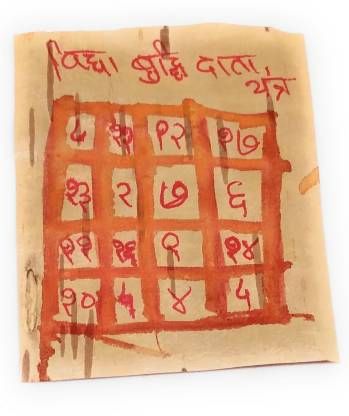 विद्या बुद्धि दाता
यंत्र
१२ १७
१३ २ ७ ६
११ १४
१० ४ ५